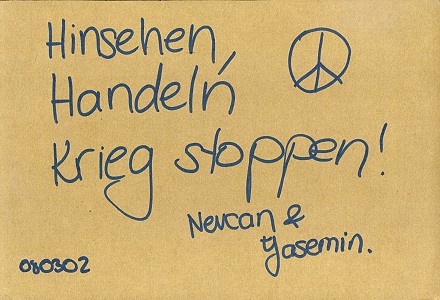 Hinsehen,
Handeln,
Krieg stoppen!
Nevcan &
Yasemin.
080302